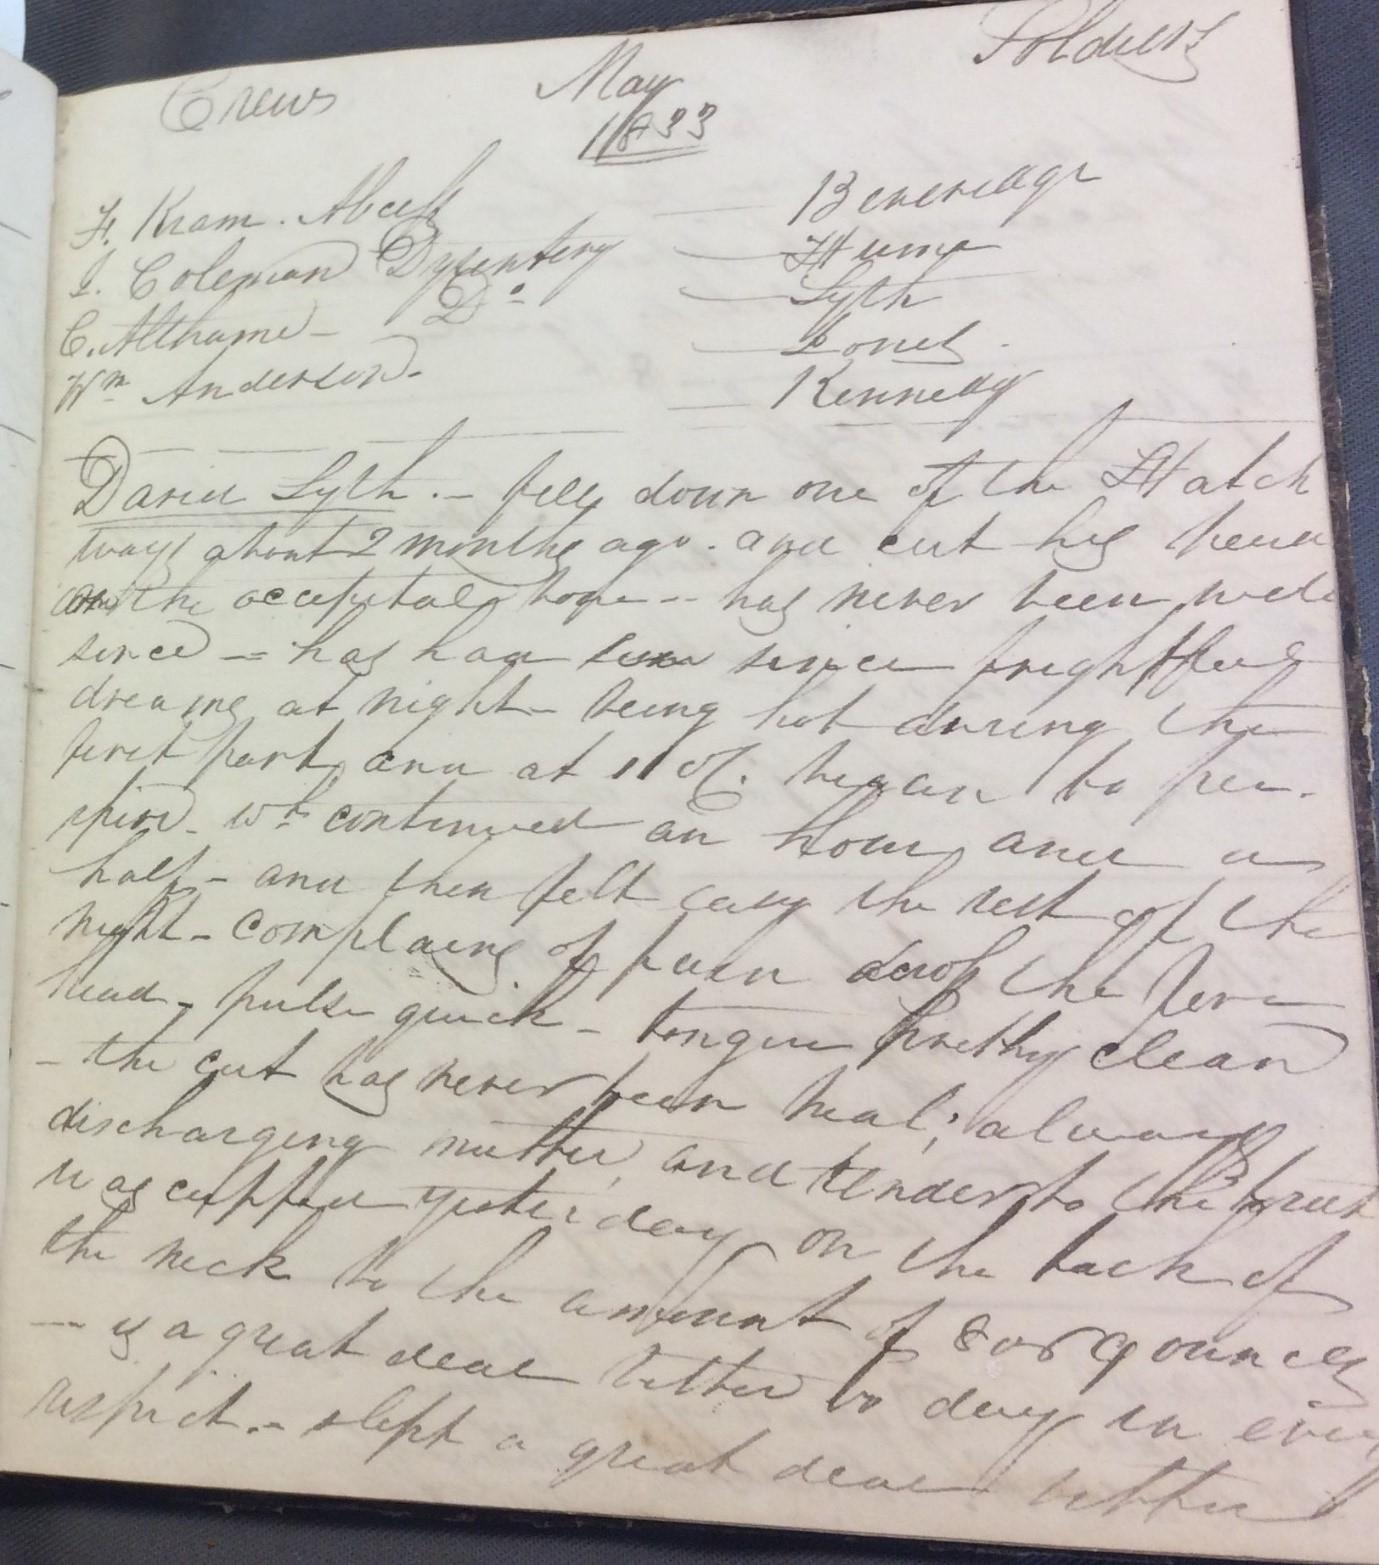 Crews May Soldiers
1833
F. Kram. Abcess — Beveredge
J. Coleman Dysentery — Hume
C. Althame - Do — Lyth
Wm Anderson - — Jones.
— Kennedy
David Lyth. - fell down one of the Hatch
ways about 2 months ago. and cut his head
on the occipital bone - has never been well
since - has had since frightful
dreams at night - being hot during the
first part, and at 11 o'C. began to per-
spire - wh continued an hour and a
half - and then felt easy the rest of the
night - complains of pain across the fore
head - pulse quick - tongue pretty clean
- the cut has never been heal; always
discharging matter, and tender to the touch
was cupped yesterday on the back of
the neck to the amount of 8 or 9 ounces
- is a great deal better to day in every
respect. - slept a great deal better